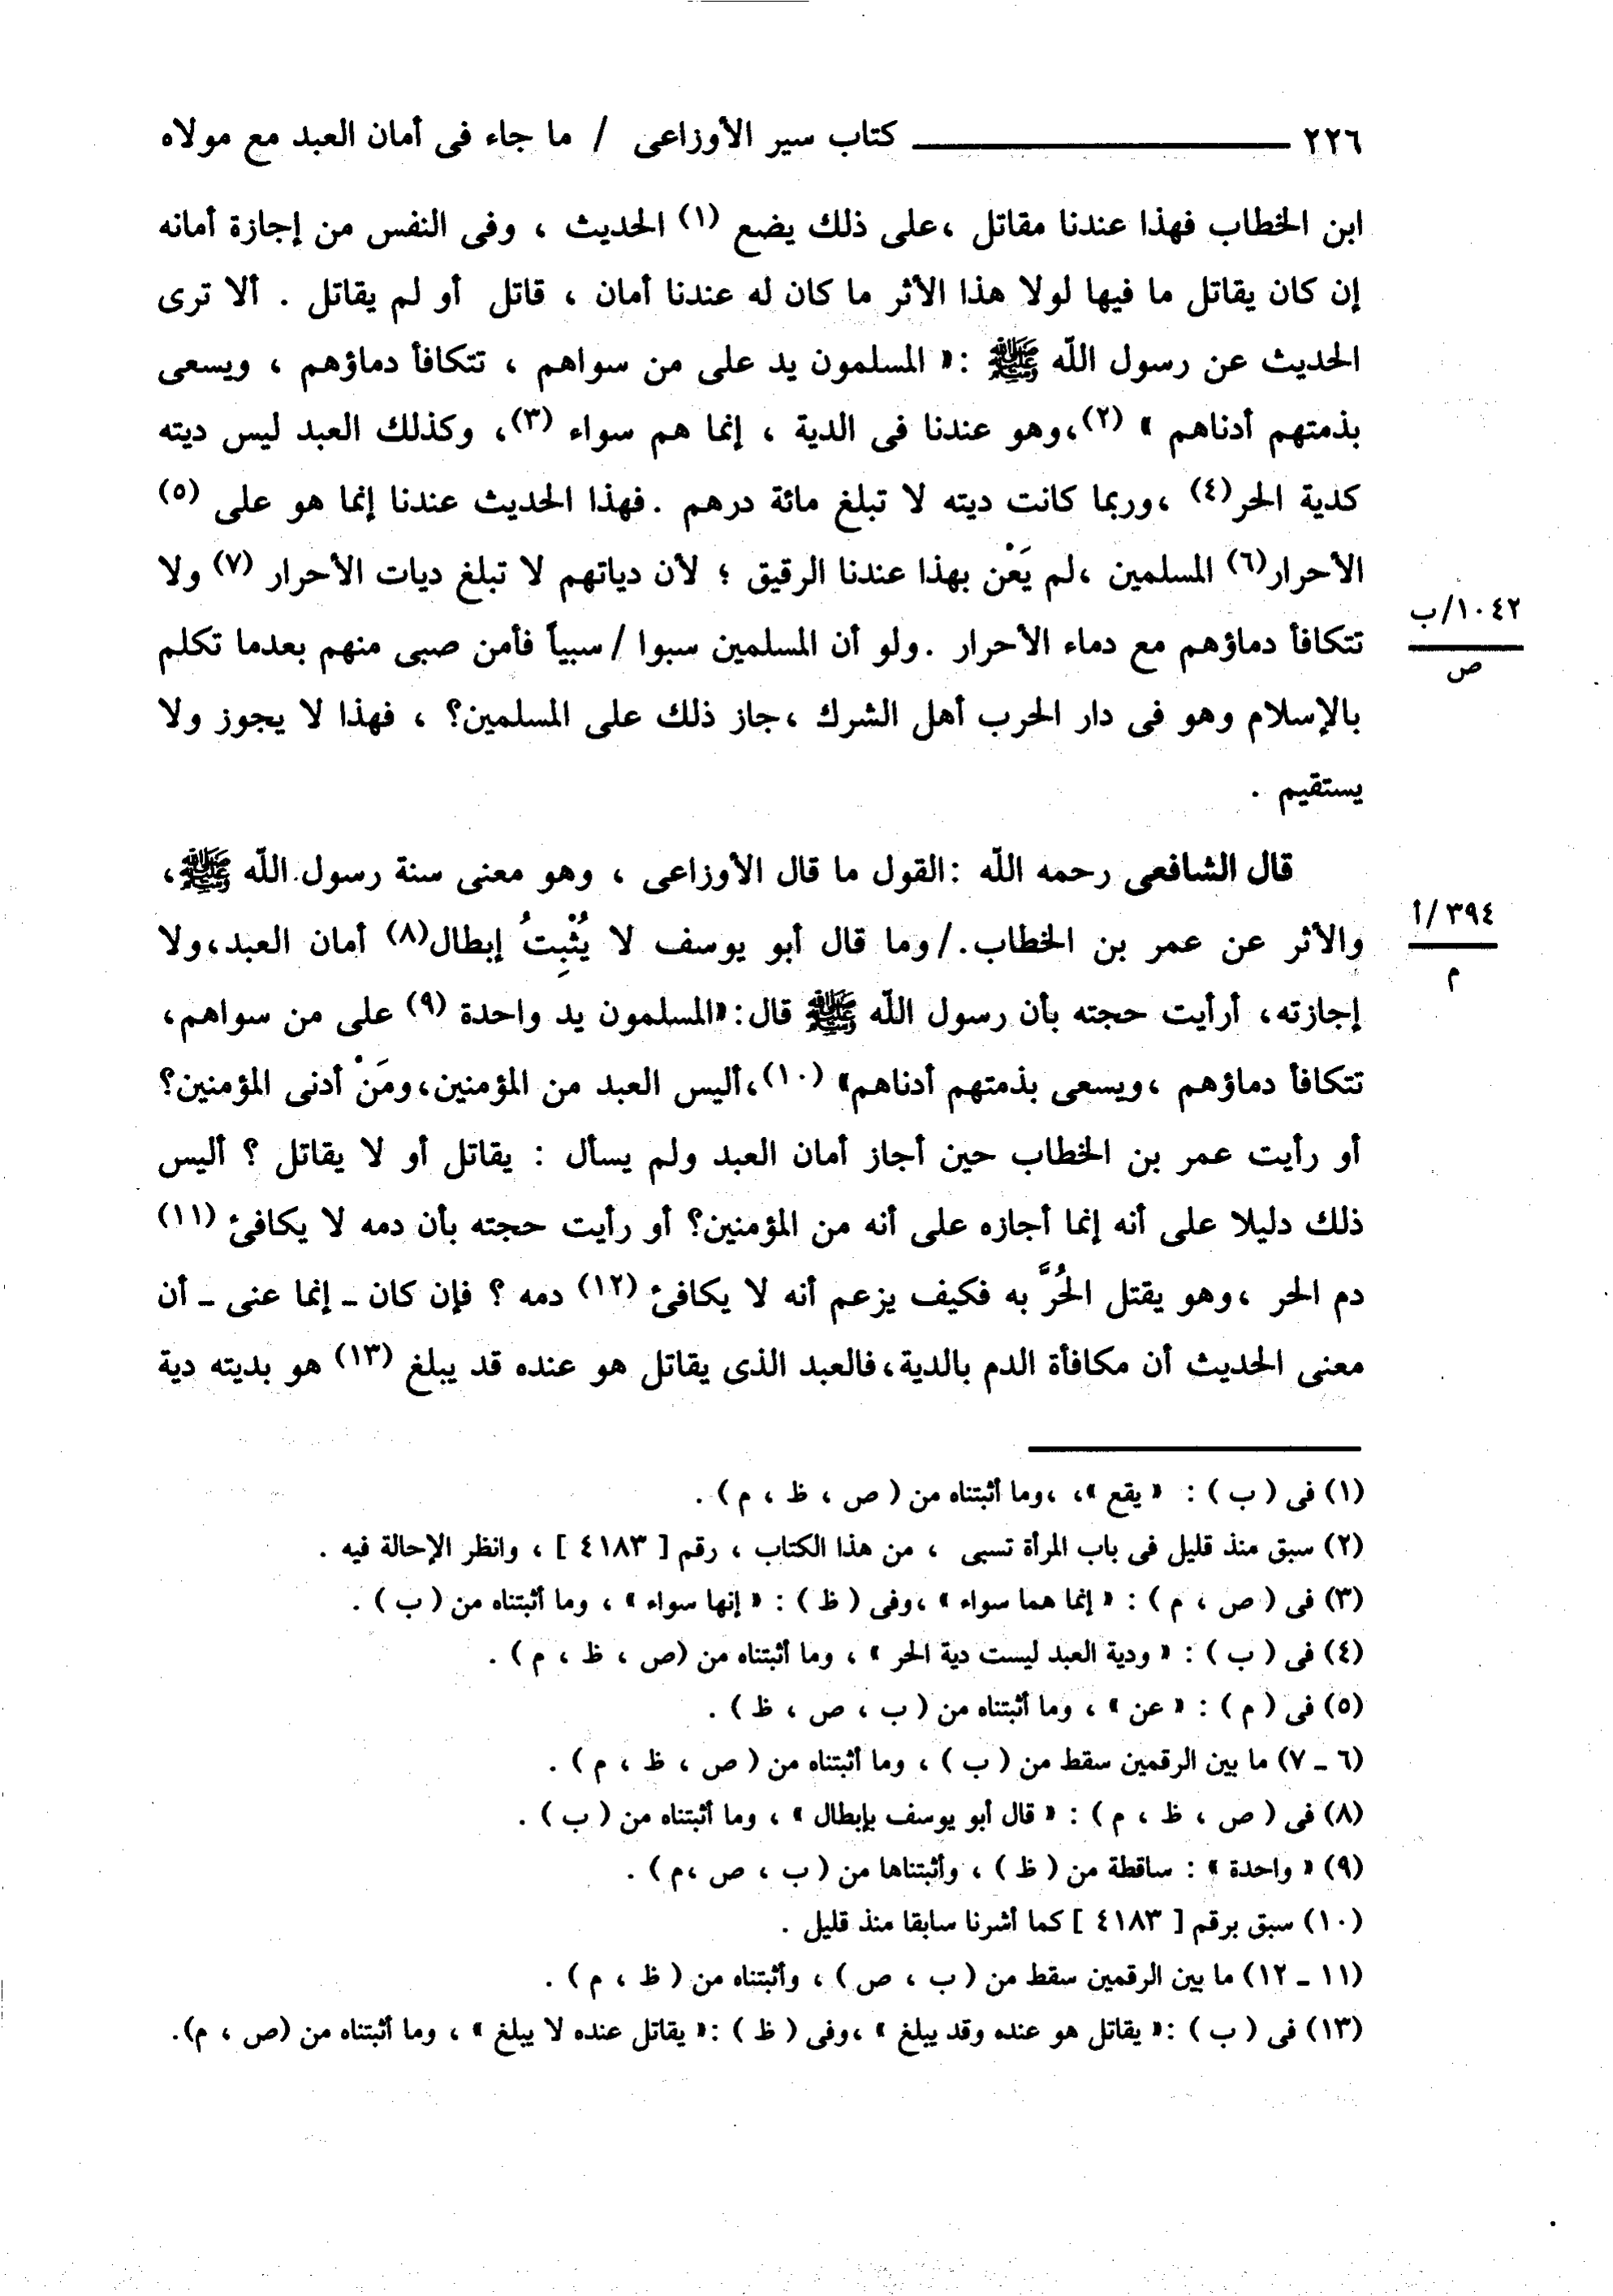 ٢٢٦ ـــــــــــــــــــ كتاب سير الأوزاعى / ما جاء فى أمان العبد مع مولاه
ابن الخطاب فهذا عندنا مقاتل ،على ذلك يضع (١) الحديث ، وفى النفس من إجازة أمانه
إن كان يقاتل ما فيها لولا هذا الأثر ما كان له عندنا أمان ، قاتل أو لم يقاتل . ألا ترى
الحديث عن رسول اللّه ﷺ :« المسلمون يد على من سواهم ، تتكافأ دماؤهم ، ويسعى
بذمتهم أدناهم » (٢)،وهو عندنا فى الدية ، إنما هم سواء (٣)، وكذلك العبد ليس ديته
كدية الحر(٤) ،وربما كانت ديته لا تبلغ مائة درهم .فهذا الحديث عندنا إنما هو على (٥)
الأحرار(٦) المسلمين ،لم يَعْن بهذا عندنا الرقيق ؛ لأن دياتهم لا تبلغ ديات الأحرار (٧) ولا
١٠٤٢/ب
تتكافأ دماؤهم مع دماء الأحرار .ولو أن المسلمين سبوا / سبياً فأمن صبى منهم بعدما تكلم
ص
بالإسلام وهو فى دار الحرب أهل الشرك ،جاز ذلك على المسلمين؟ ، فهذا لا يجوز ولا
يستقيم .
قال الشافعى رحمه اللّه :القول ما قال الأوزاعى ، وهو معنى سنة رسول اللّه ﷺ،
٣٩٤/أ
والأثر عن عمر بن الخطاب./ وما قال أبو يوسف لا يُثْبِتُ إبطال(٨) أمان العبد،ولا
م
إجازته، أرأيت حجته بأن رسول اللّه ﷺ قال:«المسلمون يد واحدة (٩) على من سواهم،
تتكافأ دماؤهم ،ويسعى بذمتهم أدناهم» (١٠)،أليس العبد من المؤمنين،ومَنْ أدنى المؤمنين؟
أو رأيت عمر بن الخطاب حين أجاز أمان العبد ولم يسأل : يقاتل أو لا يقاتل ؟ أليس
ذلك دليلا على أنه إنما أجازه على أنه من المؤمنين؟ أو رأيت حجته بأن دمه لا يكافئ (١١)
دم الحر ،وهو يقتل الحُرَّ به فكيف يزعم أنه لا يكافئ (١٢) دمه ؟ فإن كان ـ إنما عنى ـ أن
معنى الحديث أن مكافأة الدم بالدية،فالعبد الذى يقاتل هو عنده قد يبلغ (١٣) هو بديته دية
(١) فى ( ب ) : « يقع »، ،وما أثبتناه من ( ص ، ظ ، م ) .
(٢) سبق منذ قليل فى باب المرأة تسبى ، من هذا الكتاب ، رقم [ ٤١٨٣ ] ، وانظر الإحالة فيه .
(٣) فى ( ص ، م ) : « إنما هما سواء » ،وفى ( ظ ) : « إنها سواء » ، وما أثبتناه من ( ب ) .
(٤) فى ( ب ) : « ودية العبد ليست دية الحر » ، وما أثبتناه من (ص ، ظ ، م ) .
(٥) فى ( م ) : « عن » ، وما أثبتناه من ( ب ، ص ، ظ ) .
(٦ ـ ٧) ما بين الرقمين سقط من ( ب ) ، وما أثبتناه من ( ص ، ظ ، م ) .
(٨) فى ( ص ، ظ ، م ) : « قال أبو يوسف بإبطال » ، وما أثبتناه من ( ب ) .
(٩) « واحدة » : ساقطة من ( ظ ) ، وأثبتناها من ( ب ، ص ،م ) .
(١٠) سبق برقم [ ٤١٨٣ ] كما أشرنا سابقا منذ قليل .
(١١ ـ ١٢) ما بين الرقمين سقط من ( ب ، ص ) ، وأثبتناه من ( ظ ، م ) .
(١٣) فى ( ب ) :« يقاتل هو عنده وقد يبلغ » ،وفى ( ظ ) :« يقاتل عنده لا يبلغ » ، وما أثبتناه من (ص ، م).